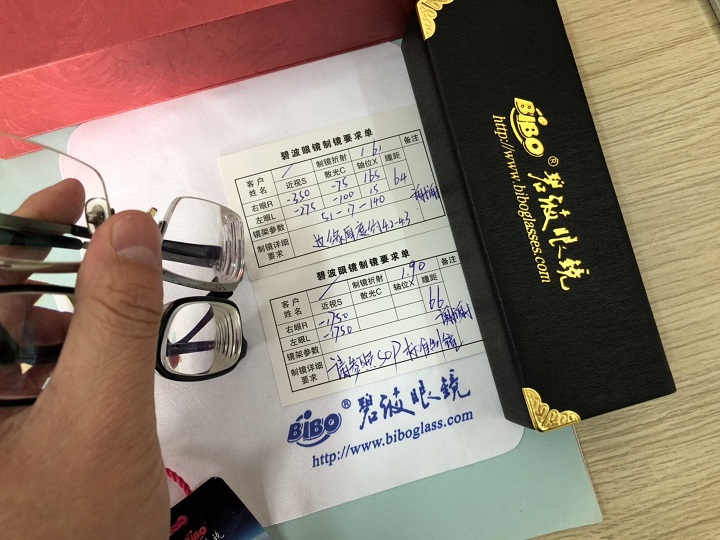 碧波眼镜制镜要求单
客户姓名 制镜折射 1.61 备注
近视S 散光C 轴位X 瞳距
右眼R -350 -75 165 64
左眼L -275 -100 15 谢谢
镜架参数 51-17-140
制镜详细要求
碧波眼镜制镜要求单
客户姓名 制镜折射 1.90 备注
近视S 散光C 轴位X 瞳距
右眼R -1750 66
左眼L -1750 谢谢
镜架参数
制镜详细要求 请参照SOP标准制镜
BiBO® 碧波眼镜
http://www.biboglass.com
BiBO® 碧波眼镜
http://www.biboglasses.com
BiBO